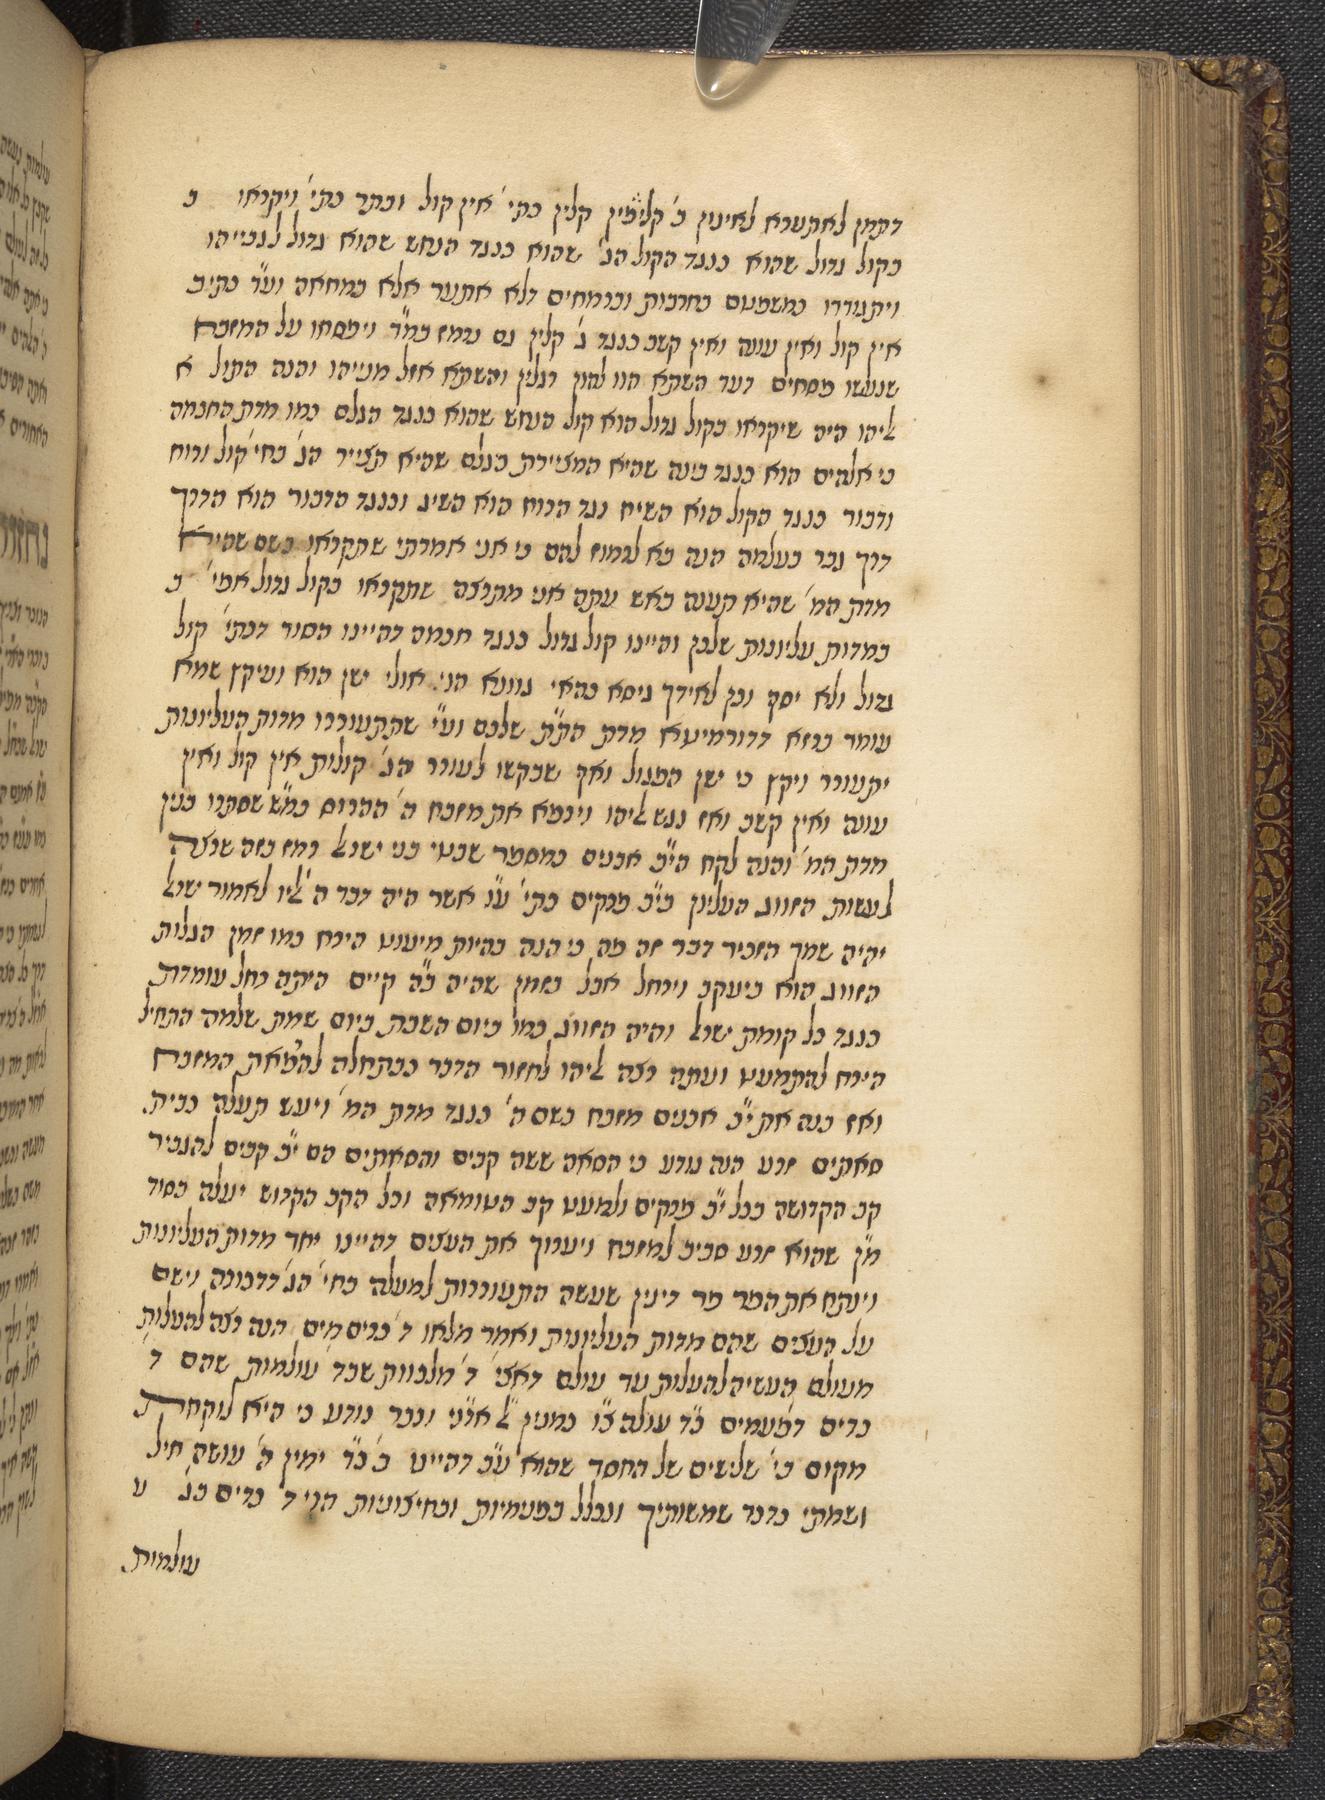 דקמן לאתערא לאינון ב׳ קלימין קלין כתי׳ אין קול ובתר כתי׳ ויקראו ב
בקול גדול שהוא כנגד הקול הג׳ שהוא כנגד הנחש שהוא גדול לגבייהו
ויתגודדו כמשפטם בחרבות וברמחים דלא אתער אלא במחאה וע״ד כתיב
אין קול ואין עונה ואין קשב כנגד ג׳ קלין גם נרמז במ״ד ויפסחו על המזבח
שנעשו פסחים דעד השתא הוו להון רגלין והשתא אזל מנייהו והנה הקול א
ליהו היה שיקראו בקול גדול הוא קול הנחש שהוא כנגד הגלם כמו מדת החכמה
כי אלהים הוא כנגד בינה שהיא המציירת בגלם שהיא הצייר הג׳ בחי׳ קול ורוח
ודבור כנגד הקול הוא השיח נגד הרוח הוא השיג וכנגד הדבור הוא הדרך
דרך גבר בעלמה הנה בא לרמוז להם כי אני אמרתי שתקראו בשם שהיא
מדת המ׳ שהיא תענה באש עתה אני מתרצה שתקראו בקול גדול אפי׳ ב
במדות עליונות שלכן והיינו קול גדול כנגד חכמה דהיינו הסוד דכתי׳ קול
גדול ולא יסף וכן לאידך גיסא כהאי גוונא הני אולי ישן הוא ויקץ שמא
עומד ברזא דדורמיטא מדת הת״ת שלכם וע״י שתתעוררו מדות העליונות
יתעורר ויקץ כי ישן הפגול ואף שבקשו לעורר הג׳ קולות אין קול ואין
עונה ואין קשב ואז נגש ליהו וירפא את מזבח ה׳ ההרוס כמ״ש שסתרו בנין
מדת המ׳ והנה לקח הי״ב אבנים כמספר שבטי בני ישראל רמז בזה שרצה
לעשות הזווג העליון בי״ב פרקים כתי׳ ע״ו אשר היה דבר ה׳ ליו לאמור ישראל
יהיה שמך הזכיר דבר זה פה כי הנה בהיות מיעוט הירח כמו זמן הגלות
הזווג הוא ביעקב וירחל אבל בזמן שהיה ב״ה קיים היתה רחל עומדת
כנגד כל קומת ישראל והיה הזווג כמו ביום השבת ביום שמת שלמה התחיל
הירח להתמעט ועתה רצה ליהו לחזור הדבר כבתחלה להפאת המזבח
ואז בנה את י״ב אבנים מזבח בשם ה׳ כנגד מדת המ׳ ויעש תעלה כבית
סאתים זרע הנה נודע כי הסאה ששה קבים והסאתים הם י״ב קבים להגביר
קב הקדושה בכל י״ב פרקים ולמעט קב הטומאה וכל הקב הקדוש יעלה בסוד
מ״ן שהוא זרע סביב למזבח ויערוך את העצים דהיינו יחד מדות העליונות
וינתח את הפר פר דינין שעשה התעוררות למעלה בחי׳ הג׳ דדכורה וישם
על העצים שהם מדות העליונות ואמר מלאו ד׳ כדים מים הנה רצה להעלות
מעולם העשיה להעלות עד עולם דאצי׳ ד׳ מלכויות שבד׳ עולמות שהם ד׳
כדים דפעמים כ״ד עולה צ״ו כמנין ל אדני וכבר נודע כי היא לוקחת
מקום ב׳ שלישים של החסד שהוא ע״ב דהיינו ב׳ כ״ד ימין ה׳ עושה חיל
ושמתי כדכד שמשותיך ונכלל בפנמיות ובחיצוניות הני ד׳ כדים בג׳ ע
עולמות